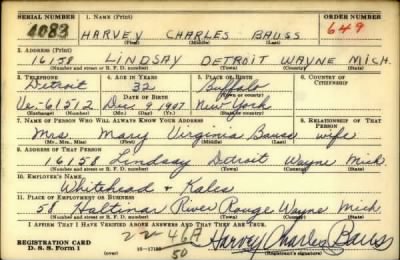 SERIAL NUMBER 1. NAME (Print) ORDER NUMBER
4083 HARVEY CHARLES BAUSS 649
(First) (Middle) (Last)
2. ADDRESS (Print)
16158 LINDSAY DETROIT WAYNE MICH.
(Number and street or R. F. D. number) (Town) (County) (State)
3. TELEPHONE 4. AGE IN YEARS 5. PLACE OF BIRTH 6. COUNTRY OF CITIZENSHIP
Detroit 32 Buffalo
(Exchange) DATE OF BIRTH (Town or county)
Ve-61512 Dec 9 1907 New York
(Number) (Mo.) (Day) (Yr.) (State or country)
7. NAME OF PERSON WHO WILL ALWAYS KNOW YOUR ADDRESS 8. RELATIONSHIP OF THAT PERSON
Mrs Mary Virginia Bauss wife
(Mr., Mrs., Miss) (First) (Middle) (Last)
9. ADDRESS OF THAT PERSON
16158 Lindsay Detroit Wayne Mich
(Number and street or R. F. D. number) (Town) (County) (State)
10. EMPLOYER'S NAME
Whitehead & Kales
11. PLACE OF EMPLOYMENT OR BUSINESS
58 Haltiner River Rouge Wayne Mich
(Number and street or R. F. D. number) (Town) (County) (State)
I AFFIRM THAT I HAVE VERIFIED ABOVE ANSWERS AND THAT THEY ARE TRUE.
REGISTRATION CARD
D. S. S. Form 1 Harvey Charles Bauss
50